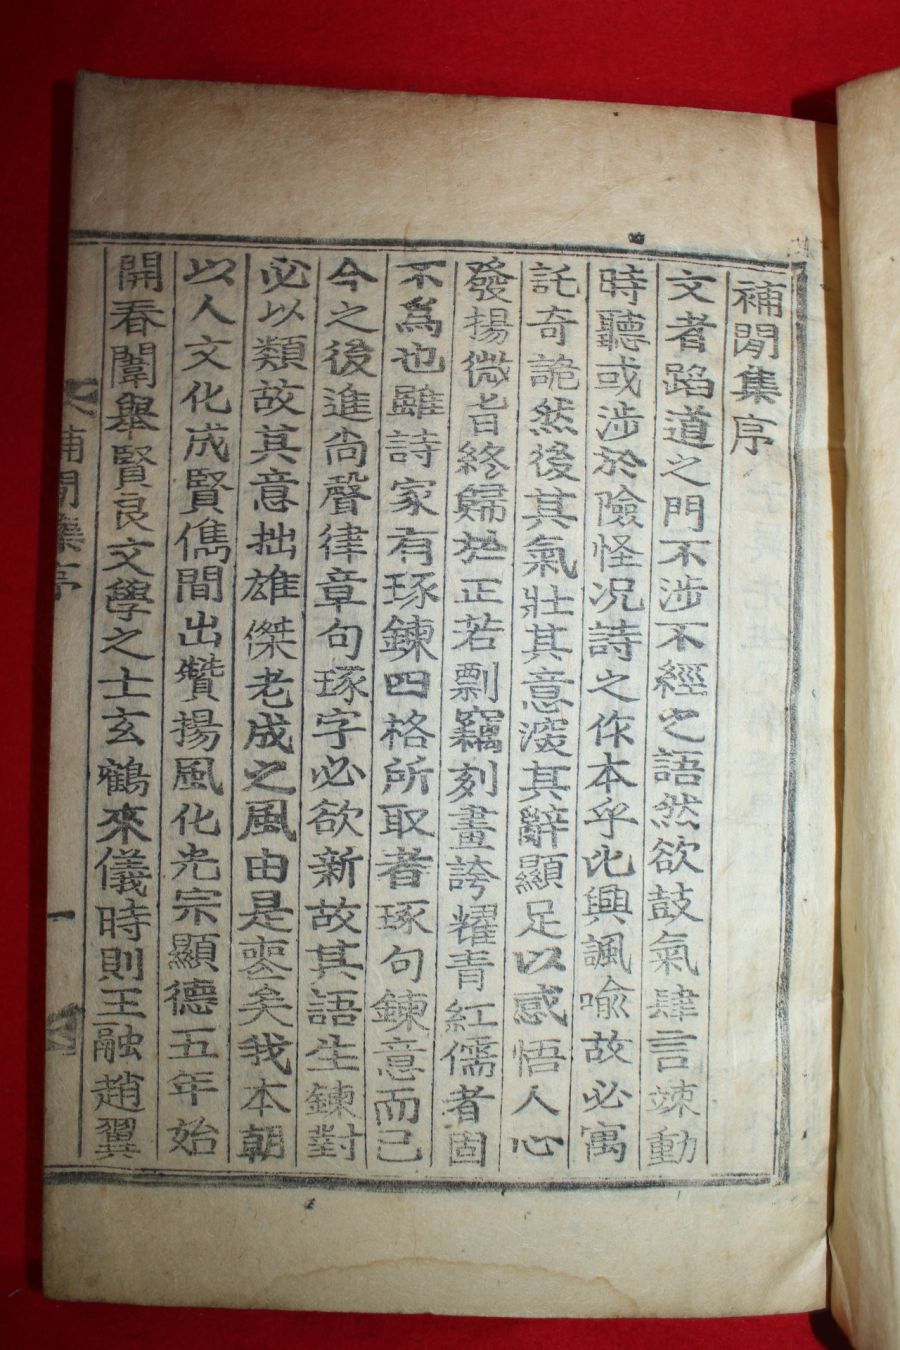 補閑集序
文者蹈道之門不涉不經之語然欲鼓氣肆言竦動
時聽或涉於險怪况詩之作本乎比興諷喻故必寓
託奇詭然後其氣壯其意深其辭顯足以感悟人心
發揚微旨終歸於正若剽竊刻畫誇耀青紅儒者固
不爲也雖詩家有琢鍊四格所取者琢句鍊意而已
今之後進尙聲律章句琢字必欲新故其語生鍊對
必以類故其意拙雄傑老成之風由是喪矣我本朝
以人文化成賢儁間出贊揚風化光宗顯德五年始
開春闈舉賢良文學之士玄鶴來儀時則王融趙翼
補閑集序
一